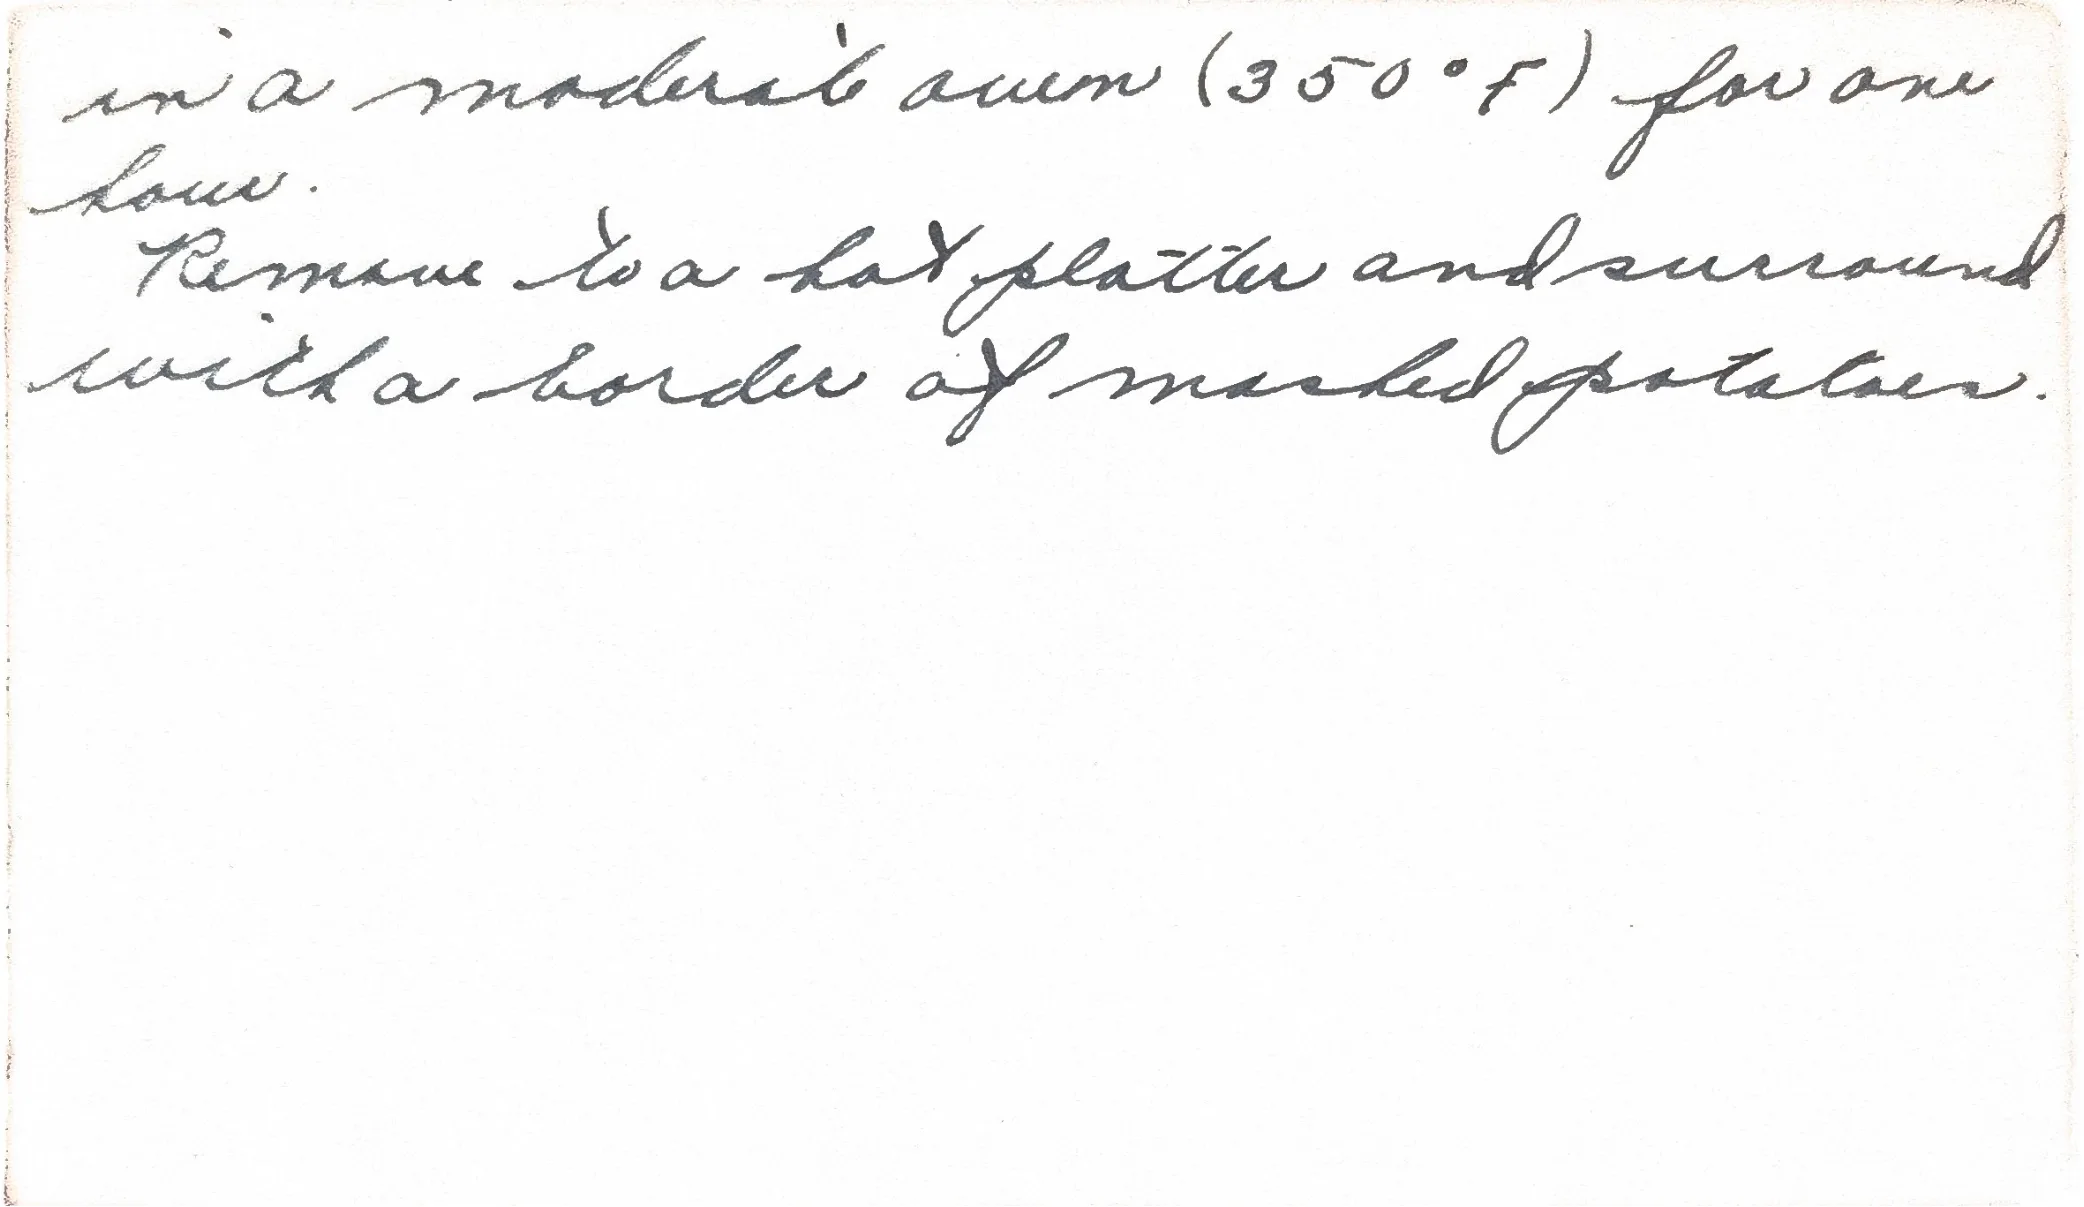 in a moderate oven (350°F) for one
hour.
Remove to a hot platter and surround
with a border of mashed potatoes.